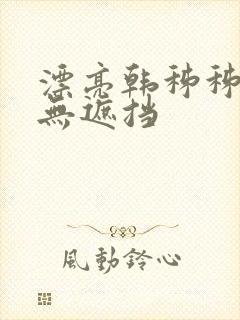 漂亮韩秭秭
無遮挡
風動鈴心